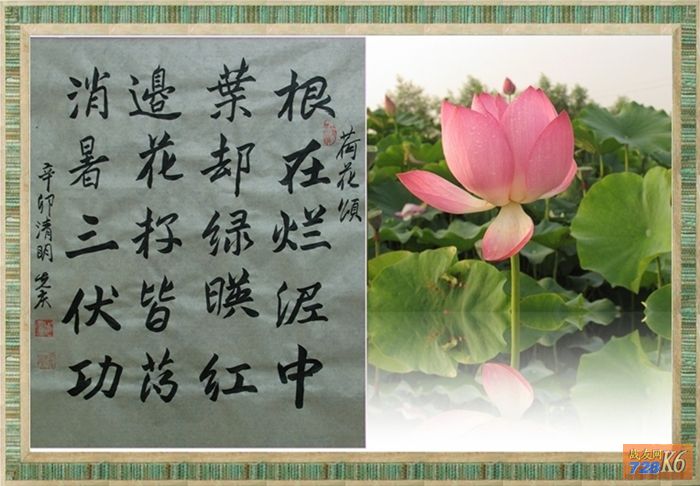 荷花頌
根在烂泥中
葉却绿暎红
邊花籽皆药
消暑三伏功
辛卯清明
战友网
728K6